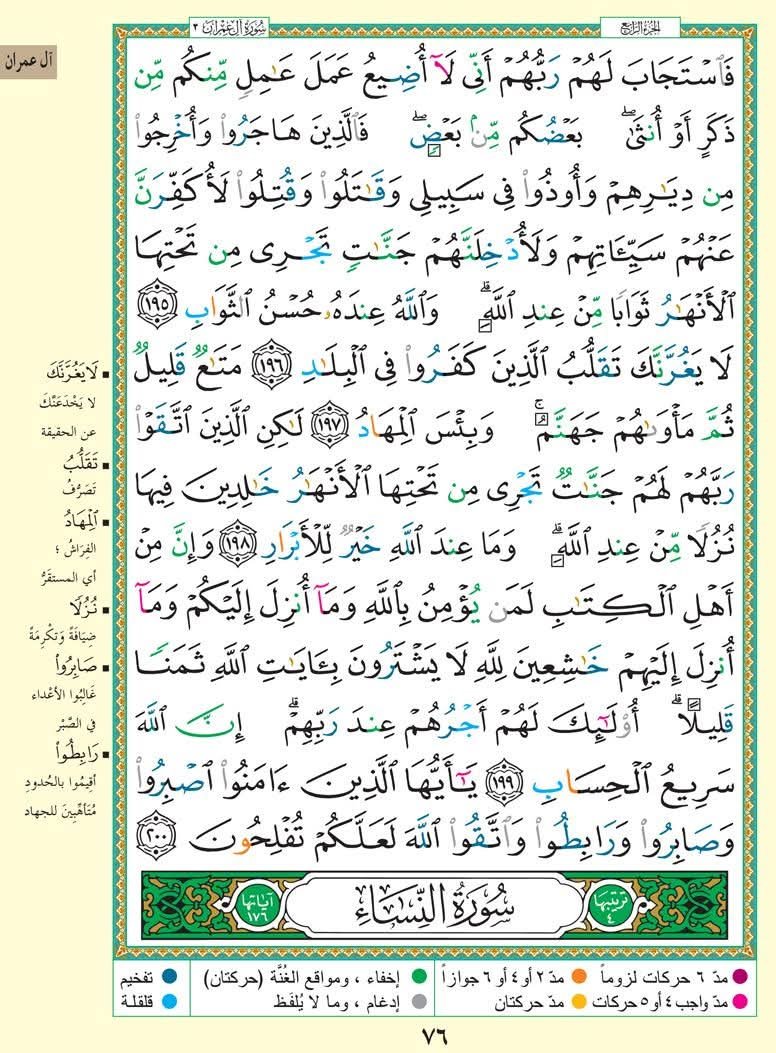 الجزء الرابع
سورة آل عمران ٣
آل عمران
فَٱسْتَجَابَ لَهُمْ رَبُّهُمْ أَنِّى لَآ أُضِيعُ عَمَلَ عَٰمِلٍ مِّنكُم مِّن
ذَكَرٍ أَوْ أُنثَىٰ ۖ بَعْضُكُم مِّنۢ بَعْضٍ ۖ فَٱلَّذِينَ هَاجَرُوا۟ وَأُخْرِجُوا۟
مِن دِيَٰرِهِمْ وَأُوذُوا۟ فِى سَبِيلِى وَقَٰتَلُوا۟ وَقُتِلُوا۟ لَأُكَفِّرَنَّ
عَنْهُمْ سَيِّـَٔاتِهِمْ وَلَأُدْخِلَنَّهُمْ جَنَّٰتٍ تَجْرِى مِن تَحْتِهَا
ٱلْأَنْهَٰرُ ثَوَابًا مِّنْ عِندِ ٱللَّهِ ۗ وَٱللَّهُ عِندَهُۥ حُسْنُ ٱلثَّوَابِ ١٩٥
لَا يَغُرَّنَّكَ تَقَلُّبُ ٱلَّذِينَ كَفَرُوا۟ فِى ٱلْبِلَٰدِ ١٩٦ مَتَٰعٌ قَلِيلٌ
ثُمَّ مَأْوَىٰهُمْ جَهَنَّمُ ۚ وَبِئْسَ ٱلْمِهَادُ ١٩٧ لَٰكِنِ ٱلَّذِينَ ٱتَّقَوْا۟
رَبَّهُمْ لَهُمْ جَنَّٰتٌ تَجْرِى مِن تَحْتِهَا ٱلْأَنْهَٰرُ خَٰلِدِينَ فِيهَا
نُزُلًا مِّنْ عِندِ ٱللَّهِ ۗ وَمَا عِندَ ٱللَّهِ خَيْرٌ لِّلْأَبْرَارِ ١٩٨ وَإِنَّ مِنْ
أَهْلِ ٱلْكِتَٰبِ لَمَن يُؤْمِنُ بِٱللَّهِ وَمَآ أُنزِلَ إِلَيْكُمْ وَمَآ
أُنزِلَ إِلَيْهِمْ خَٰشِعِينَ لِلَّهِ لَا يَشْتَرُونَ بِـَٔايَٰتِ ٱللَّهِ ثَمَنًا
قَلِيلًا ۗ أُو۟لَٰٓئِكَ لَهُمْ أَجْرُهُمْ عِندَ رَبِّهِمْ ۗ إِنَّ ٱللَّهَ
سَرِيعُ ٱلْحِسَابِ ١٩٩ يَٰٓأَيُّهَا ٱلَّذِينَ ءَامَنُوا۟ ٱصْبِرُوا۟
وَصَابِرُوا۟ وَرَابِطُوا۟ وَٱتَّقُوا۟ ٱللَّهَ لَعَلَّكُمْ تُفْلِحُونَ ٢٠٠
ترتيبها ٤
سُورَةُ النِّسَاءِ
آياتها ١٧٦
لَا يَغُرَّنَّكَ
لا يَخْدَعَنَّكَ
عن الحقيقة
تَقَلُّبُ
تَصَرُّفُ
ٱلْمِهَادُ
الفِرَاشُ ؛
أي المستقَرُّ
نُزُلًا
ضِيَافَةً وَتَكْرِمَةً
صَابِرُوا۟
غَالِبُوا الأعْداء
في الصَّبْرِ
رَابِطُوا۟
أقِيمُوا بالحُدودِ
مُتَأَهِّبِينَ للجهاد
مدّ ٦ حركات لزوماً
مدّ ٢ أو ٤ أو ٦ جوازاً
إخفاء ، ومواقع الغُنَّة (حركتان)
تفخيم
مدّ واجب ٤ أو ٥ حركات
مدّ حركتان
إدغام ، وما لا يُلفَظ
قلقلة
٧٦